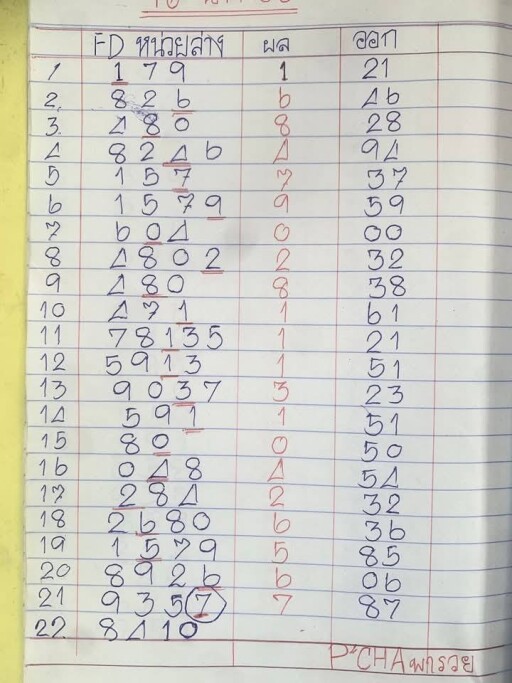 FD หน่วยล่าง ผล ออก
1 179 1 21
2. 826 6 46
3. 480 8 28
4 8246 4 94
5 157 7 37
6 1579 9 59
7 604 0 00
8 4802 2 32
9 480 8 38
10 471 1 61
11 78135 1 21
12 5913 1 51
13 9037 3 23
14 591 1 51
15 80 0 50
16 048 4 54
17 284 2 32
18 2680 6 36
19 1579 5 85
20 8926 6 06
21 9357 7 87
22. 8410
P'CHA พารวย